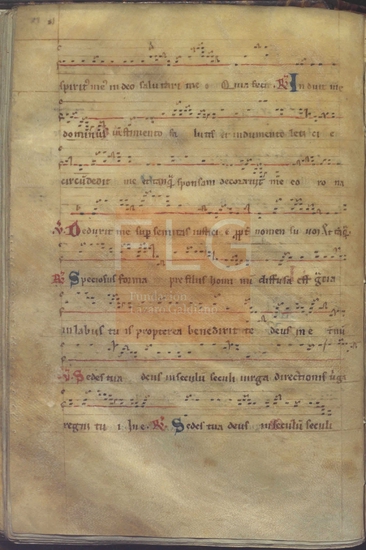 spirit' me' in deo salutari me o Quia fecit. R' Induit me
dominus vestimento sa lutis et indumento leti ci e
circudedit me et tanq' sponsam decoravit me co ro na
V Deduxit me sup semitas iusticie
R' Speciosus forma pre filiis homi nu diffusa est gratia
in labiis tu is propterea benedixit te deus in e tnu
V Sedes tua deus in seculu seculi virga directionis uga
regni tu i In e. R' Sedes tua deus in seculu seculi
FLG
Fundación